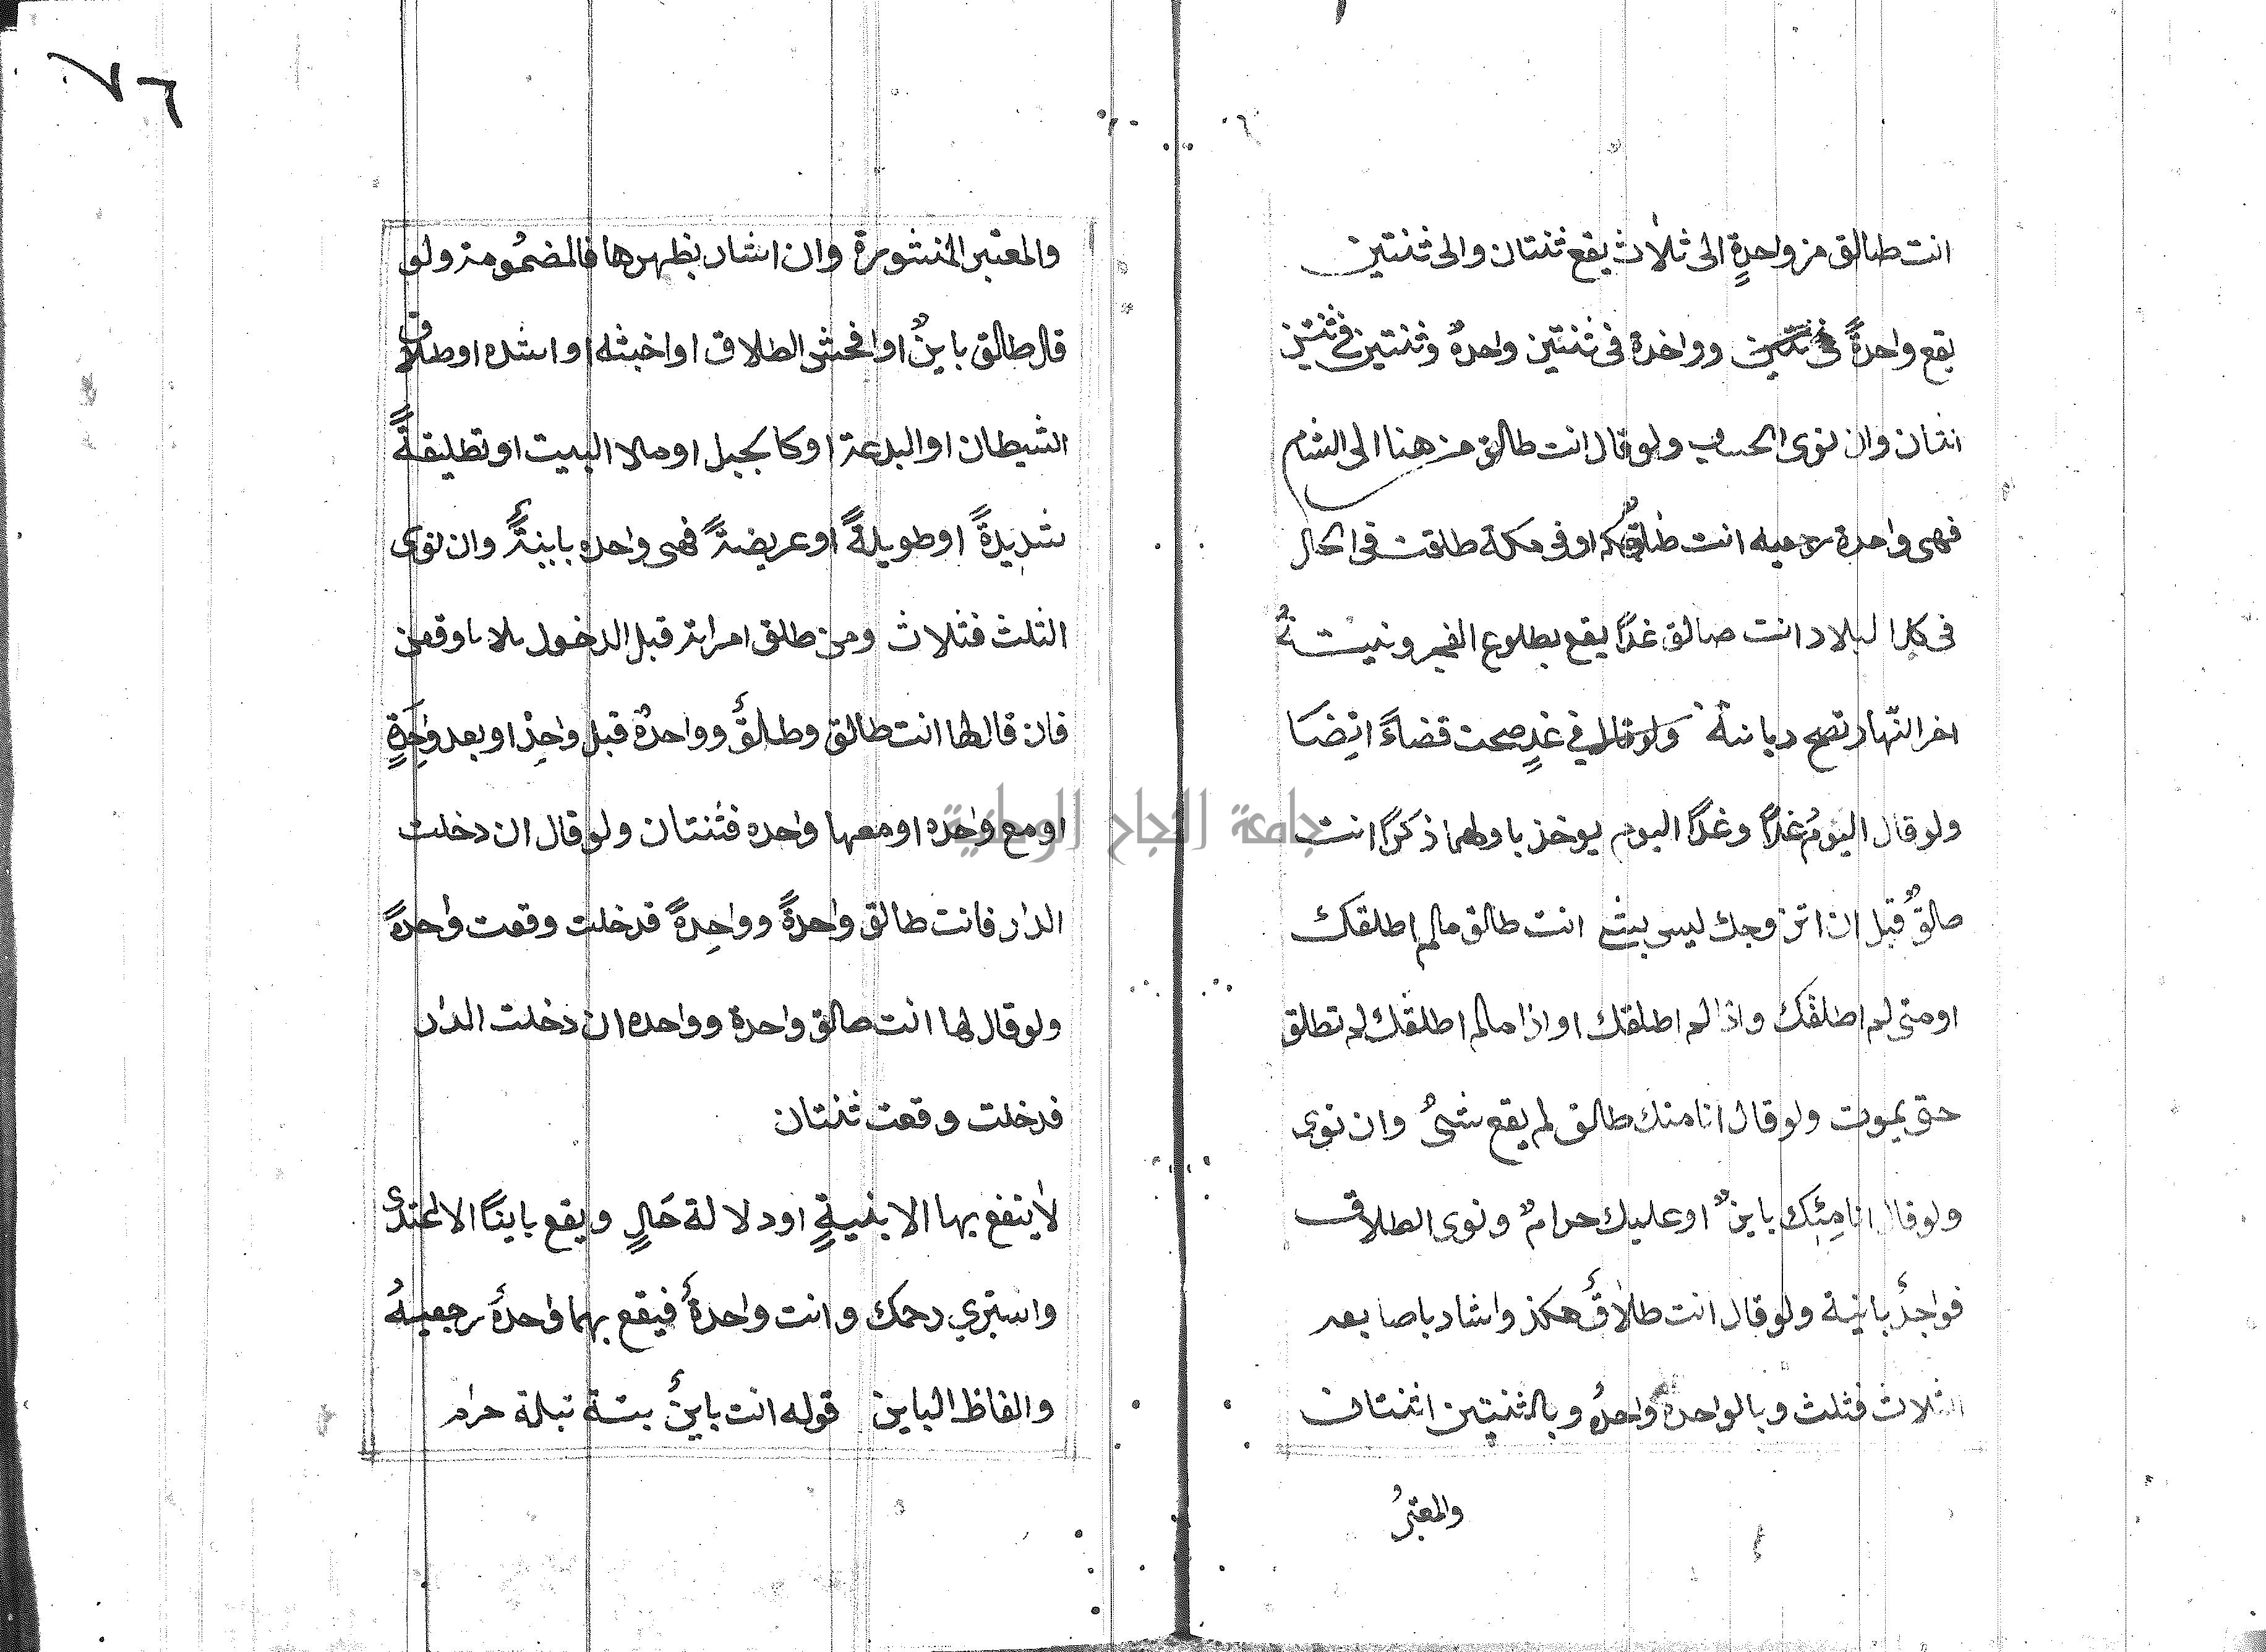 انت طالق من واحدةٍ الى ثلاث يقع ثنتان والى ثنتين
يقع واحدةً وواحدة فى ثنتين واحدةٌ وثنتين فى ثنتين
اثنان وان نوى الحساب ولو قال انت طالق من هنا الى الشام
فهى واحدة رجعيه انت طالق بمكه او فى مكة طلقت فى الحال
فى كل البلاد انت طالق غدًا يقع بطلوع الفجر ونيته
اخر النّهار تصح ديانة ولو قال في غدٍ صحت قضاءً ايضا
ولو قال اليومُ غدًا وغدًا اليوم يوخذ باولهما ذكرًا انت
طالقٌ قبل ان اتزوجك ليس بشئ انت طالق مالم اطلقك
او متى لم اطلقك واذا لم اطلقك او اذا مالم اطلقك لم تطلق
حتى يموت ولو قال انا منك طالق لم يقع شىُ وان نوى
ولو قال انا مِنْك باينٌ او عليك حرامٌ ونوى الطلاق
فواحدةٌ باينة ولو قال انت طلاقٌ هكذ واشار باصابعه
الثلاث فثلث وبالواحدة واحدةٌ وبالثنتين اثنتان
والمعتبرُ
٧٦
والمعتبر المنشورة وان اشار بظهرها فالمضمُومة ولو
قال طالق باينٌ او افحش الطلاق او اخبثه او اشده او طلاق
الشيطان او البدعة او كالجبل او ملا البيت او تطليقةً
شديدةً او طويلةً او عريضةً فهى واحده باينةً وان نوى
الثلث فثلاث ومن طلق امراته قبل الدخول ثلاثا وقعن
فان قال لها انت طالق وطالقٌ وواحدةٌ قبل واحدة او بعد واحِدَةٍ
او مع واحده او معها واحده فثنتان ولو قال ان دخلت
الدار فانت طالق واحدةً وواحِدةً فدخلت وقعت واحدةً
ولو قال لها انت طالق واحدة وواحده ان دخلت الدار
فدخلت وقعت ثنتان
لا يتفع بها الا بنيةٍ او دلالة حَالٍ ويقع باينًا الا اعتدى
واستبري رحمك وانت واحدةٌ فيقع بهما واحدةٌ رجعيةُ
والفاظ الباين قوله انت باينٌ بتة تبلة حرام
جامعة النجاح الوطنية